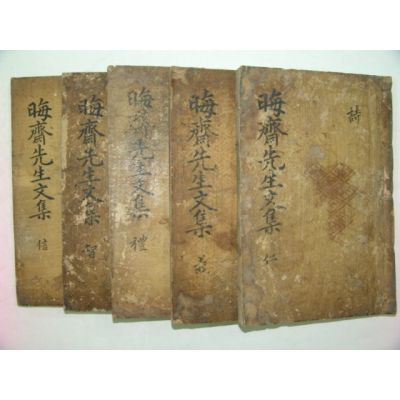 詩
晦齋先生文集 仁
晦齋先生文集 義
晦齋先生文集 禮
晦齋先生文集 智
晦齋先生文集 信